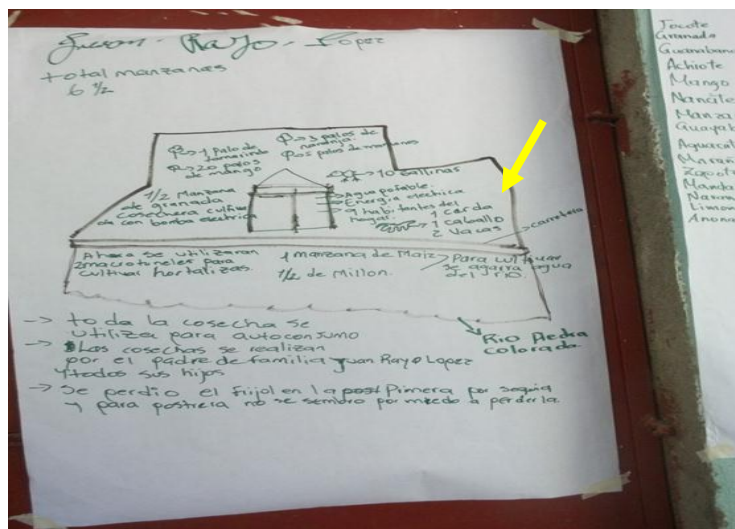 Juan - Rayo - Lopez
total manzanas
6 1/2
1 palo de tamarindo
20 palos de mango
3 palos de naranja.
5 palos de manzanas
10 gallinas
1/2 Manzana
de granada
cosechera cultiva
da con bomba electrica
Agua potable.
Energia electrica
9 habitantes del
hogar.
1 cerda
1 caballo
2 vacas
carretera
Ahora se utilizaran
2 macrotuneles para
cultivar hortalizas.
1 manzana de Maiz
1/2 de Millon.
Para cultivar
se agarra agua
del rio.
Rio Piedra
colorada.
-> toda la cosecha se
utiliza para autoconsumo
-> Las cosechas se realizan
por el padre de familia Juan Rayo Lopez
y todos sus hijos
-> Se perdio el frijol en la Primera por sequia
y para postrera no se sembro por miedo a perderla.
Jocote
Granada
Guanaban
Achiote
Mango
Nancite
Manza
Guayab
Aguacat
Marañ
Zapote
Manda
Naran
Limon
Anona